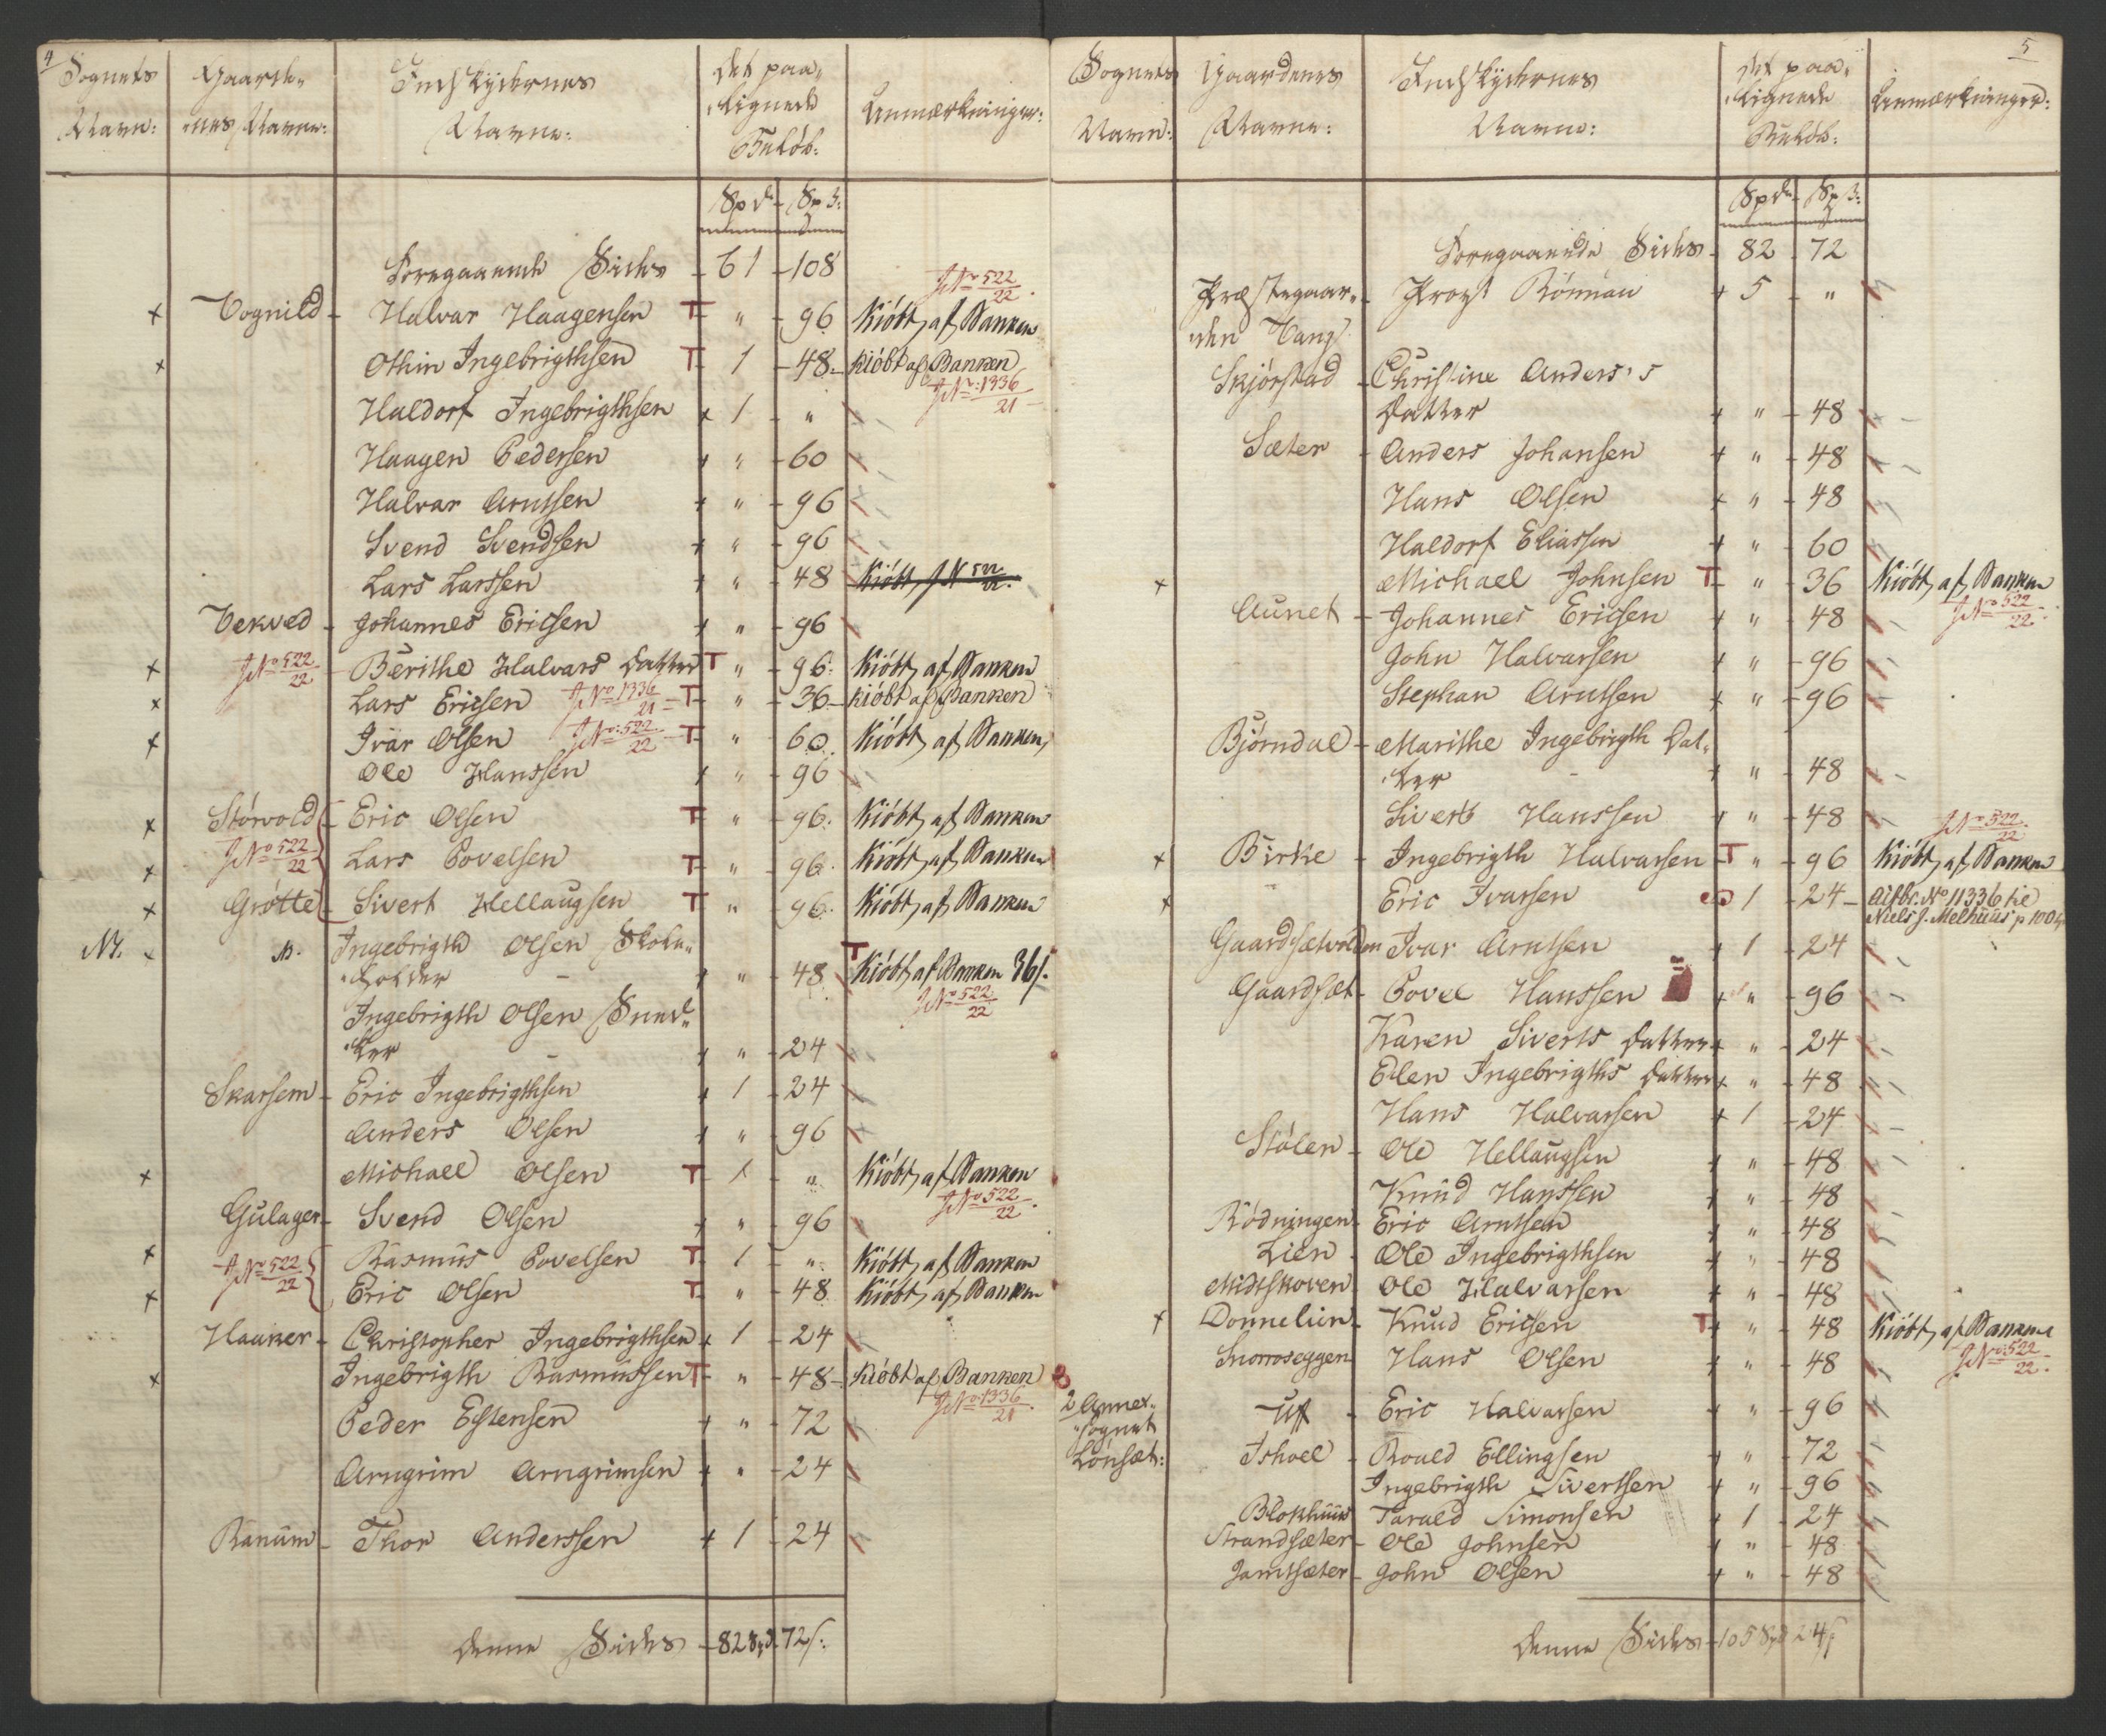 4
Sognets Navn:
Gaarde-nes Navne:
Indskydernes Navne:
Det paa-lignede Beløb:
Anmærkninger:
Spd. Sp ß:
Foregaaende Side 61 108
JNo 522/22
+ Vognild Halvar Haagensen T " 96 Kiöbt af Banken
+ Othin Ingebrigthsen T 1 48 Kiöbt af Banken
JNo: 1336/21
Haldorf Ingebrigthsen + 1 "
Haagen Pedersen + " 60
Halvar Arntsen + " 96
Svend Svendsen + " 96
Lars Larssen + " 48 Kiöbt JN 522/22.
Vekved Johannes Ericsen + " 96
+ JNo 522/22 Berithe Halvars Datter T " 96 Kiöbt af Banken
+ Lars Ericsen JNo 1336/21 T " 36 Kiöbt af Banken
+ Ivar Olsen JNo: 522/22 T " 60 Kiöbt af Banken
Ole Hanssen + " 96
+ Stórvold Eric Olsen T " 96 Kiöbt af Banken
+ JNo 522/22 Lars Povelsen T " 96 Kiöbt af Banken
+ Grótte Sivert Hellaugsen T " 96 Kiöbt af Banken
Ingebrigth Olsen Skole-
holder + " 48 T Kiöbt af Banken 36ſ.
JNo 522/22
Ingebrigth Olsen Smed-
ter + " 24
Skarsem Eric Ingebrigthsen + 1 24
Anders Olsen + " 96
+ Michael Olsen T 1 " Kiöbt af Banken
JNo 522/22
Gulager Svend Olsen + " 96
+ JNo 522/22 Rasmus Povelsen T 1 " Kiöbt af Banken
+ Eric Olsen T " 48 Kiöbt af Banken
Haaker Christopher Ingebrigthsen + 1 24
+ Ingebrigth Rasmussen T " 48 Kiöbt af Banken
JNo: 1336/21
Peder Estensen + " 72
Arngrim Arngrimsen + " 24
Ranum Thor Anderssen + 1 24
Denne Side 82 Spd. 72ſ:
5
Sognets Navn:
Gaardenes Navne:
Indskydernes Navne:
Det paa-lignede Beløb:
Anmærkninger:
Spd. Sp ß:
Foregaaende Side 82 72
Præstegaar- Provst Rönnau + 5 "
den Vang
Skjörstad Christine Anders's
Datter + " 48
Sæter Anders Johansen + " 48
Hans Olsen + " 48
Haldorf Eliassen + " 60
+ Michael Johnsen T " 36 Kiöbt af Banken
JNo 522/22
Aunet Johannes Ericsen + " 48
John Halvarsen + " 96
Stephan Arntsen + " 96
Bjórndal Marithe Ingebrigth Dat-
ter + " 48
Sivert Hanssen + " 48
JNo 522/22
+ Birke Ingebrigth Halvarsen T " 96 Kiöbt af Banken
+ Eric Ivarsen 1 24 Afbr. No 11336 til
Niels J. Melhuus p 100
Gaardsætvolden Ivar Arntsen + 1 24
Gaardsæt Povel Hanssen + " 96
Karen Siverts Datter + " 24
Ellen Ingebrigths Datter + " 48
Hans Halvarsen + 1 24
Stólen Ole Hellaugsen + " 48
Knud Hanssen + " 48
Ródningen Eric Arntsen + " 48
Lien Ole Ingebrigthsen + " 48
Midtskoven Ole Halvarsen + " 48
+ Donnelien Knud Ericsen T " 48 Kiöbt af Banken
JNo: 522/22.
Snorroseggen Hans Olsen + " 48
2 Annex-
sognet
Lónsæt:
Uff Eric Halvarsen + " 96
Ishoel Roald Ellingsen + " 72
Ingebrigth Sivertsen + " 96
Blokhuus Tarald Simonsen + 1 24
Strandsæter Ole Johnsen + " 48
Jamtsæter John Olsen + " 48
Denne Side 105 Spd 24ſ